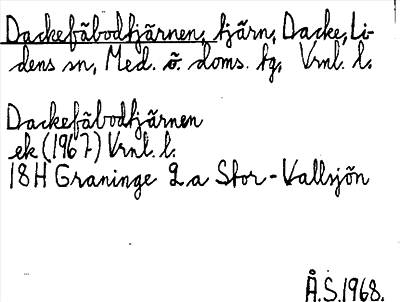 Dackefäbodtjärnen, tjärn, Dacke, Li-
dens sn, Med. ö. doms. tg, Vrnl. l.
Dackefäbodtjärnen
ek (1967) Vrnl. l.
18H Graninge 2a Stor-Vallsjön
Å.S.1968.